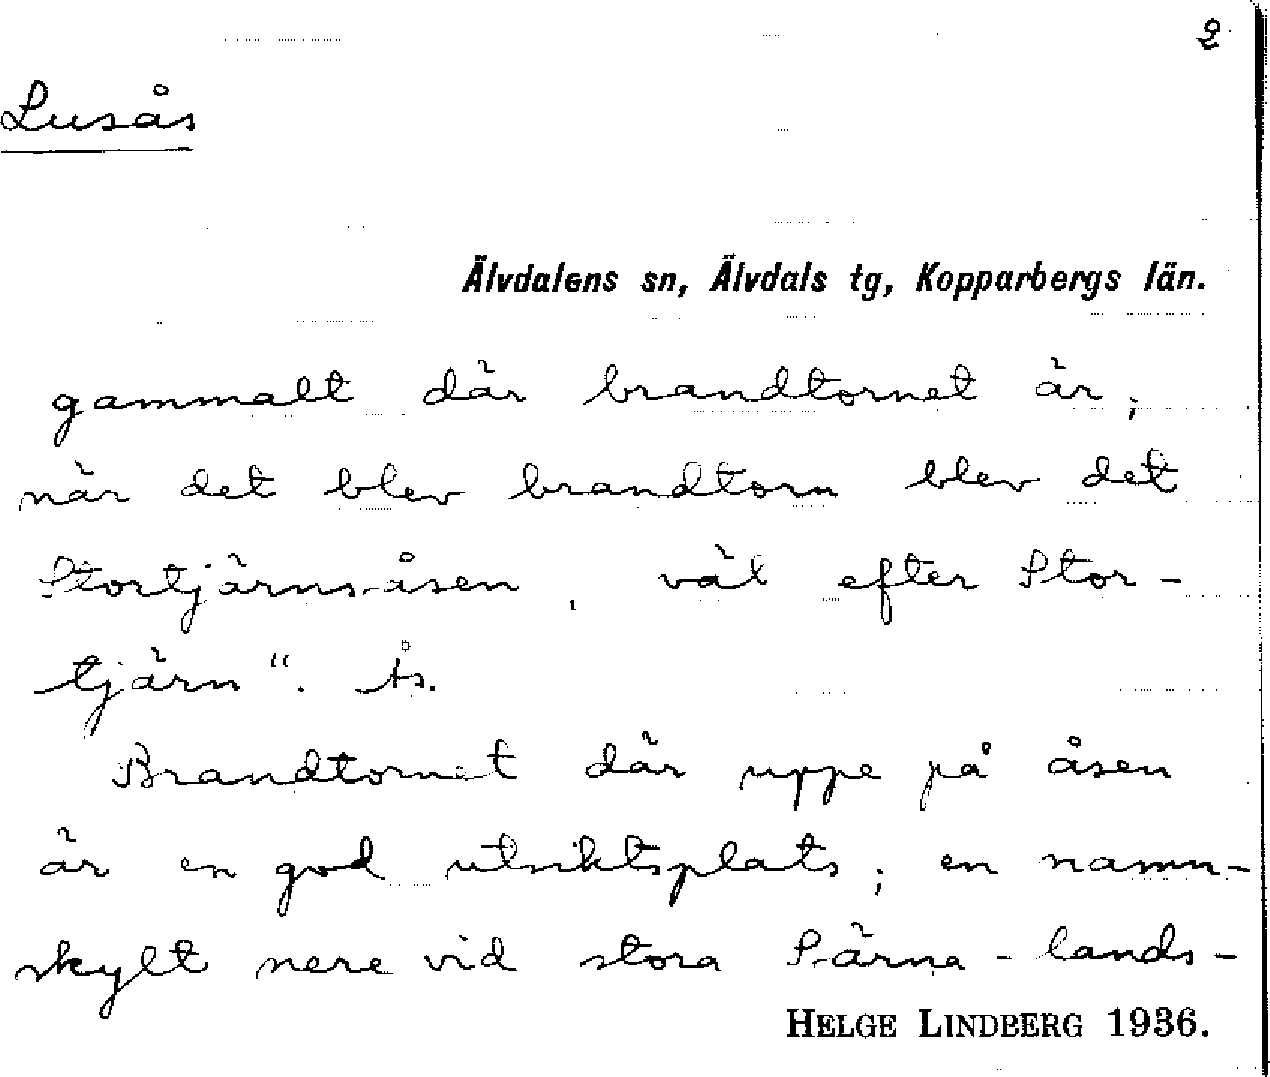 2
Lusås
Älvdalens sn, Älvdals tg, Kopparbergs län.
gammalt där brandtornet är,
när det blev brandtorn blev det
Stortjärns-åsen, väl efter Stor-
tjärn“. Ås.
Brandtornet där uppe på åsen
är en god utsiktsplats; en namn-
skylt nere vid stora Särna-lands-
HELGE LINDBERG 1936.